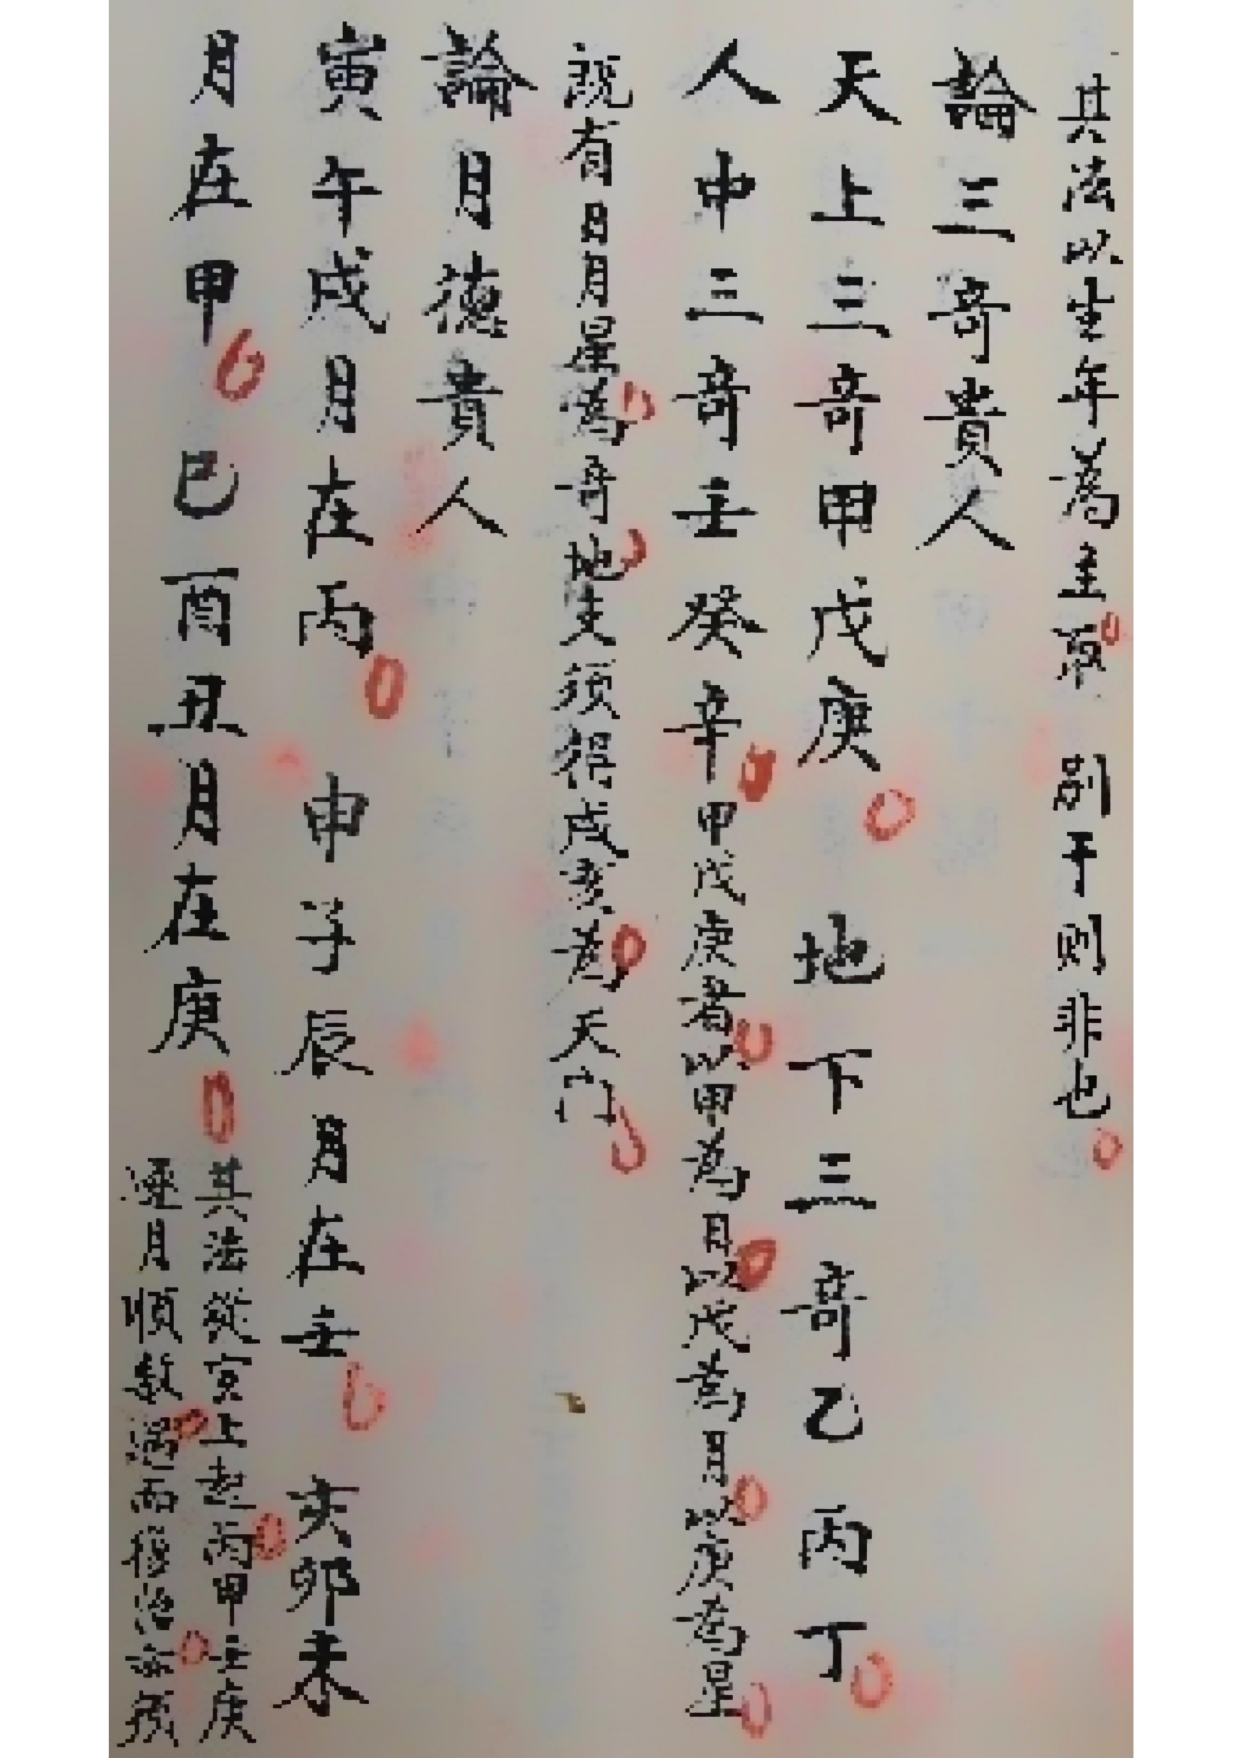 其法以生年為主取 別干則非也
論三奇貴人
天上三奇甲戊庚 地下三奇乙丙丁
人中三奇壬癸辛 甲戊庚者以甲為日以戊為月以庚為星
既有日月星為奇地支須得戌亥為天门
論月德貴人
寅午戌月在丙 申子辰月在壬 亥卯未
月在甲 巳酉丑月在庚
其法從寅上起丙甲壬庚
逐月順数遇而